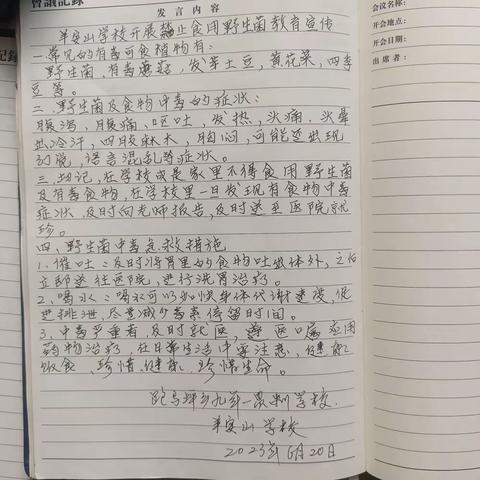 會議記錄
發言內容
羊窝山学校开展禁止食用野生菌教育宣传
一.常见的有毒可食植物有:
野生菌,有毒蘑菇,发芽土豆,黄花菜,四季
豆等。
二.野生菌及食物中毒的症状:
腹泻,腹痛,呕吐,发热,头痛,头晕
出冷汗,四肢麻木,胸闷,可能还出现
幻觉,语言混乱等症状。
三.切记,在学校或是家里不得食用野生菌
及有毒食物,在学校里一旦发现有食物中毒
症状,及时向老师报告,及时送至医院就
诊。
四.野生菌中毒急救措施
1.催吐:及时将胃里的食物吐出体外,之后
立即送往医院,进行洗胃治疗。
2.喝水:喝水可以加快身体代谢速度,促
进排泄,尽量减少毒素停留时间。
3.中毒严重者,及时就医,遵医口嘱应用
药物治疗,在日常生活中要注意,健康
饮食,珍惜健康,珍惜生命。
跑马坪乡九年一贯制学校
羊窝山学校
2023年6月20日
記錄
会议名称:
会议地点:
开会日期:
出席者: